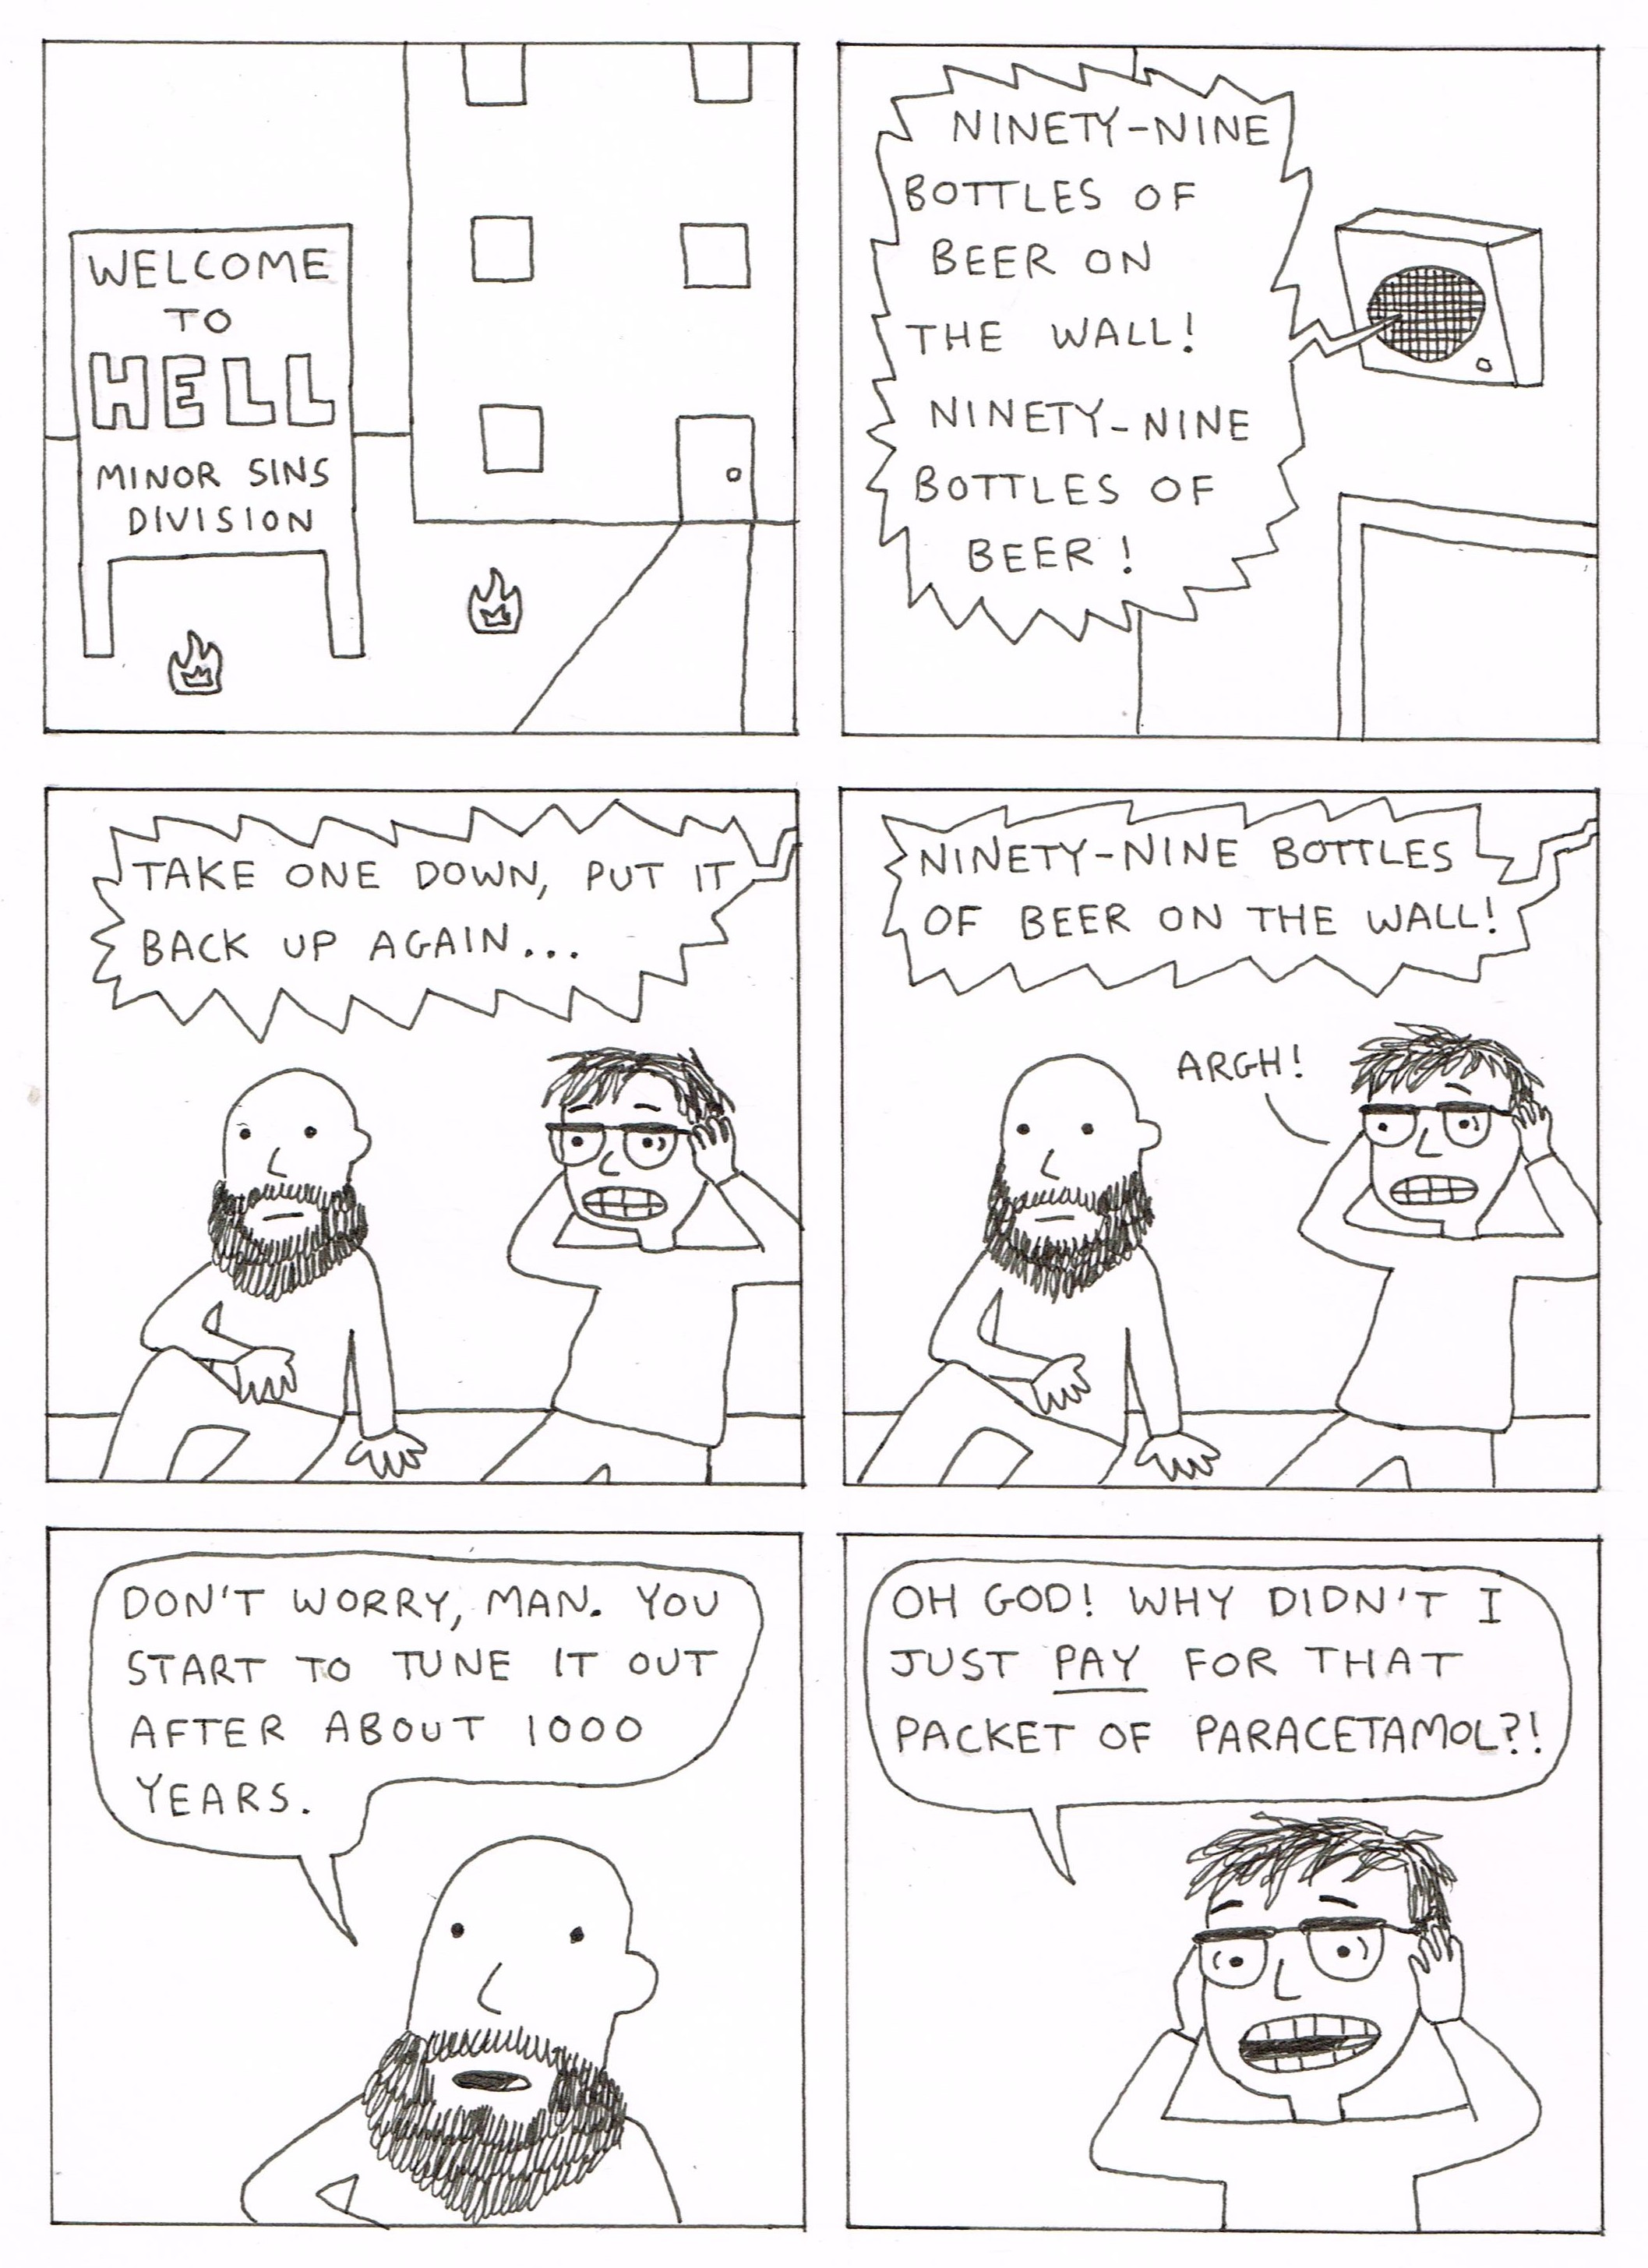 WELCOME
TO
HELL
MINOR SINS
DIVISION
NINETY-NINE
BOTTLES OF
BEER ON
THE WALL!
NINETY-NINE
BOTTLES OF
BEER!
TAKE ONE DOWN, PUT IT
BACK UP AGAIN...
NINETY-NINE BOTTLES
OF BEER ON THE WALL!
ARGH!
DON'T WORRY, MAN. YOU
START TO TUNE IT OUT
AFTER ABOUT 1000
YEARS.
OH GOD! WHY DIDN'T I
JUST PAY FOR THAT
PACKET OF PARACETAMOL?!